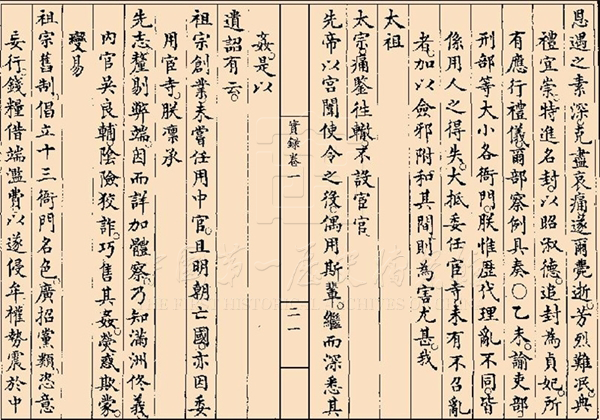 恩遇之素深克盡哀痛遂爾薨逝芳烈難泯典
禮宜崇特進名封以昭淑德追封為貞妃所
有應行禮儀爾部察例具奏○乙未諭吏部
刑部等大小各衙門朕惟歷代理亂不同皆
係用人之得失大抵委任宦寺未有不召亂
者加以僉邪附和其間則為害尤甚我
太祖
太宗痛鑒往轍不設宦官
先帝以宮闈使令之役偶用斯輩繼而深悉其
實錄卷一
二一
姦是以
遺詔有云
祖宗創業未嘗任用中官且明朝亡國亦因委
用宦寺朕懍承
先志釐剔弊端因而詳加體察乃知滿洲佟義
內官吳良輔陰險狡詐巧售其姦熒惑欺蒙
變易
祖宗舊制倡立十三衙門名色廣招黨類恣意
妄行錢糧借端濫費以遂侵牟權勢震於中